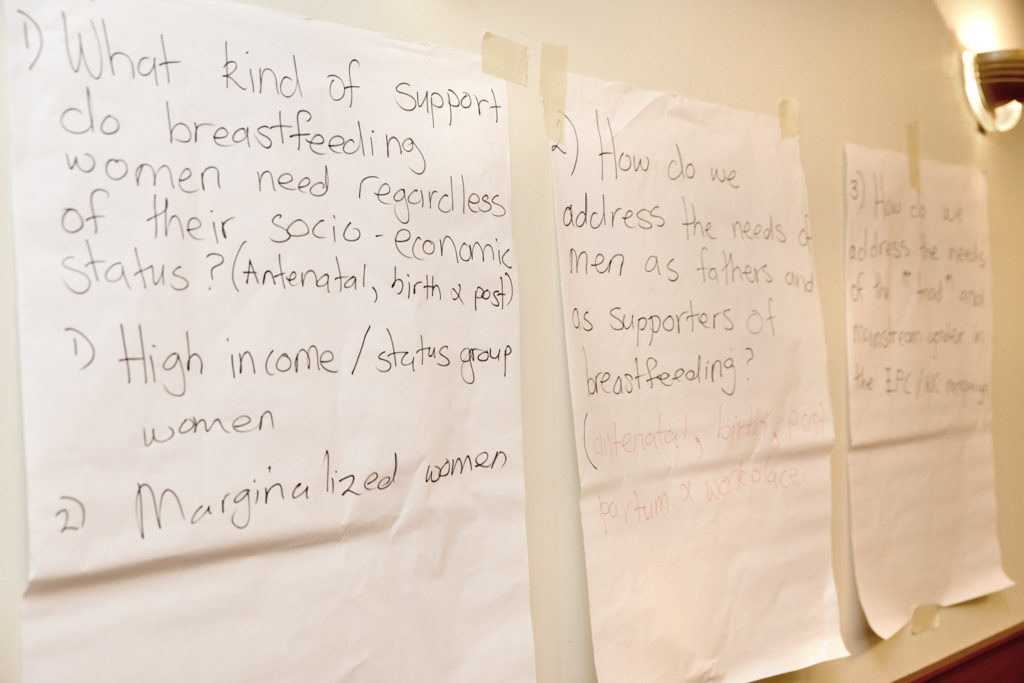 1) What kind of support
do breastfeeding
women need regardless
of their socio-economic
status? (Antenatal, birth & post)
1) High income/status group
women
2) Marginalized women
2) How do we
address the needs of
men as fathers and
as supporters of
breastfeeding?
(antenatal, birth, post
partum & workplace.
3) How do we
address the needs
of the "triad" and
mainstream gender in
the campaign